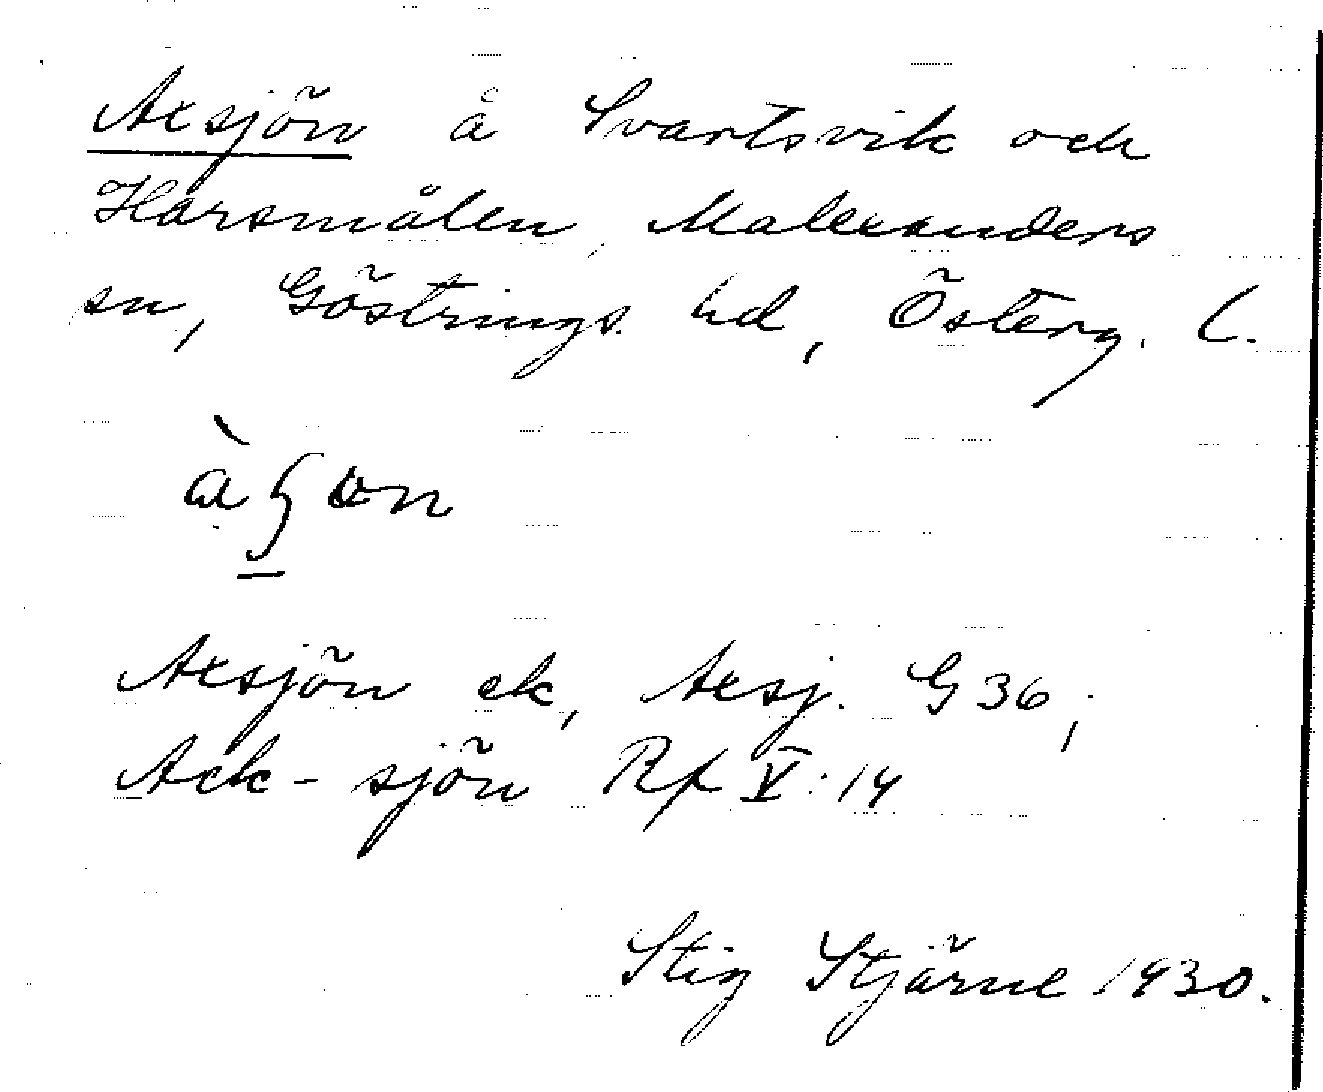 Axsjön å Svartsvik och
Harsmålen, Malexanders
sn, Göstrings hd, Österg. l.
Axsjön ek, Axsj. G 36;
Ack-sjön Rf V:14
Stig Stjärne 1930.